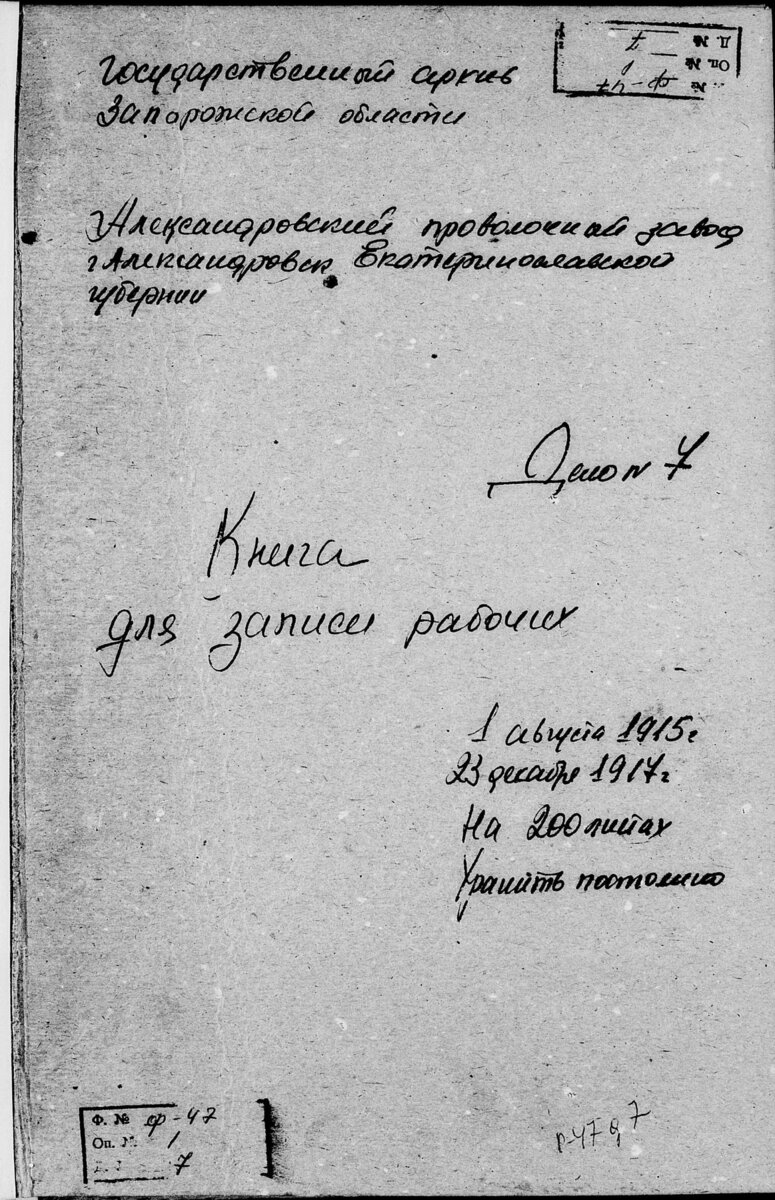 Государственный архив
Запорожской области
Ф. № Ф-47
Оп. № 1
Д. № 7
Александровский проволочный завод
г Александровск Екатеринославской
губернии
Дело N 7
Книга
для записи рабочих
1 августа 1915 г
23 декабря 1917 г.
На 200 листах
Хранить постоянно
Ф. № Ф-47
Оп. № 1
7